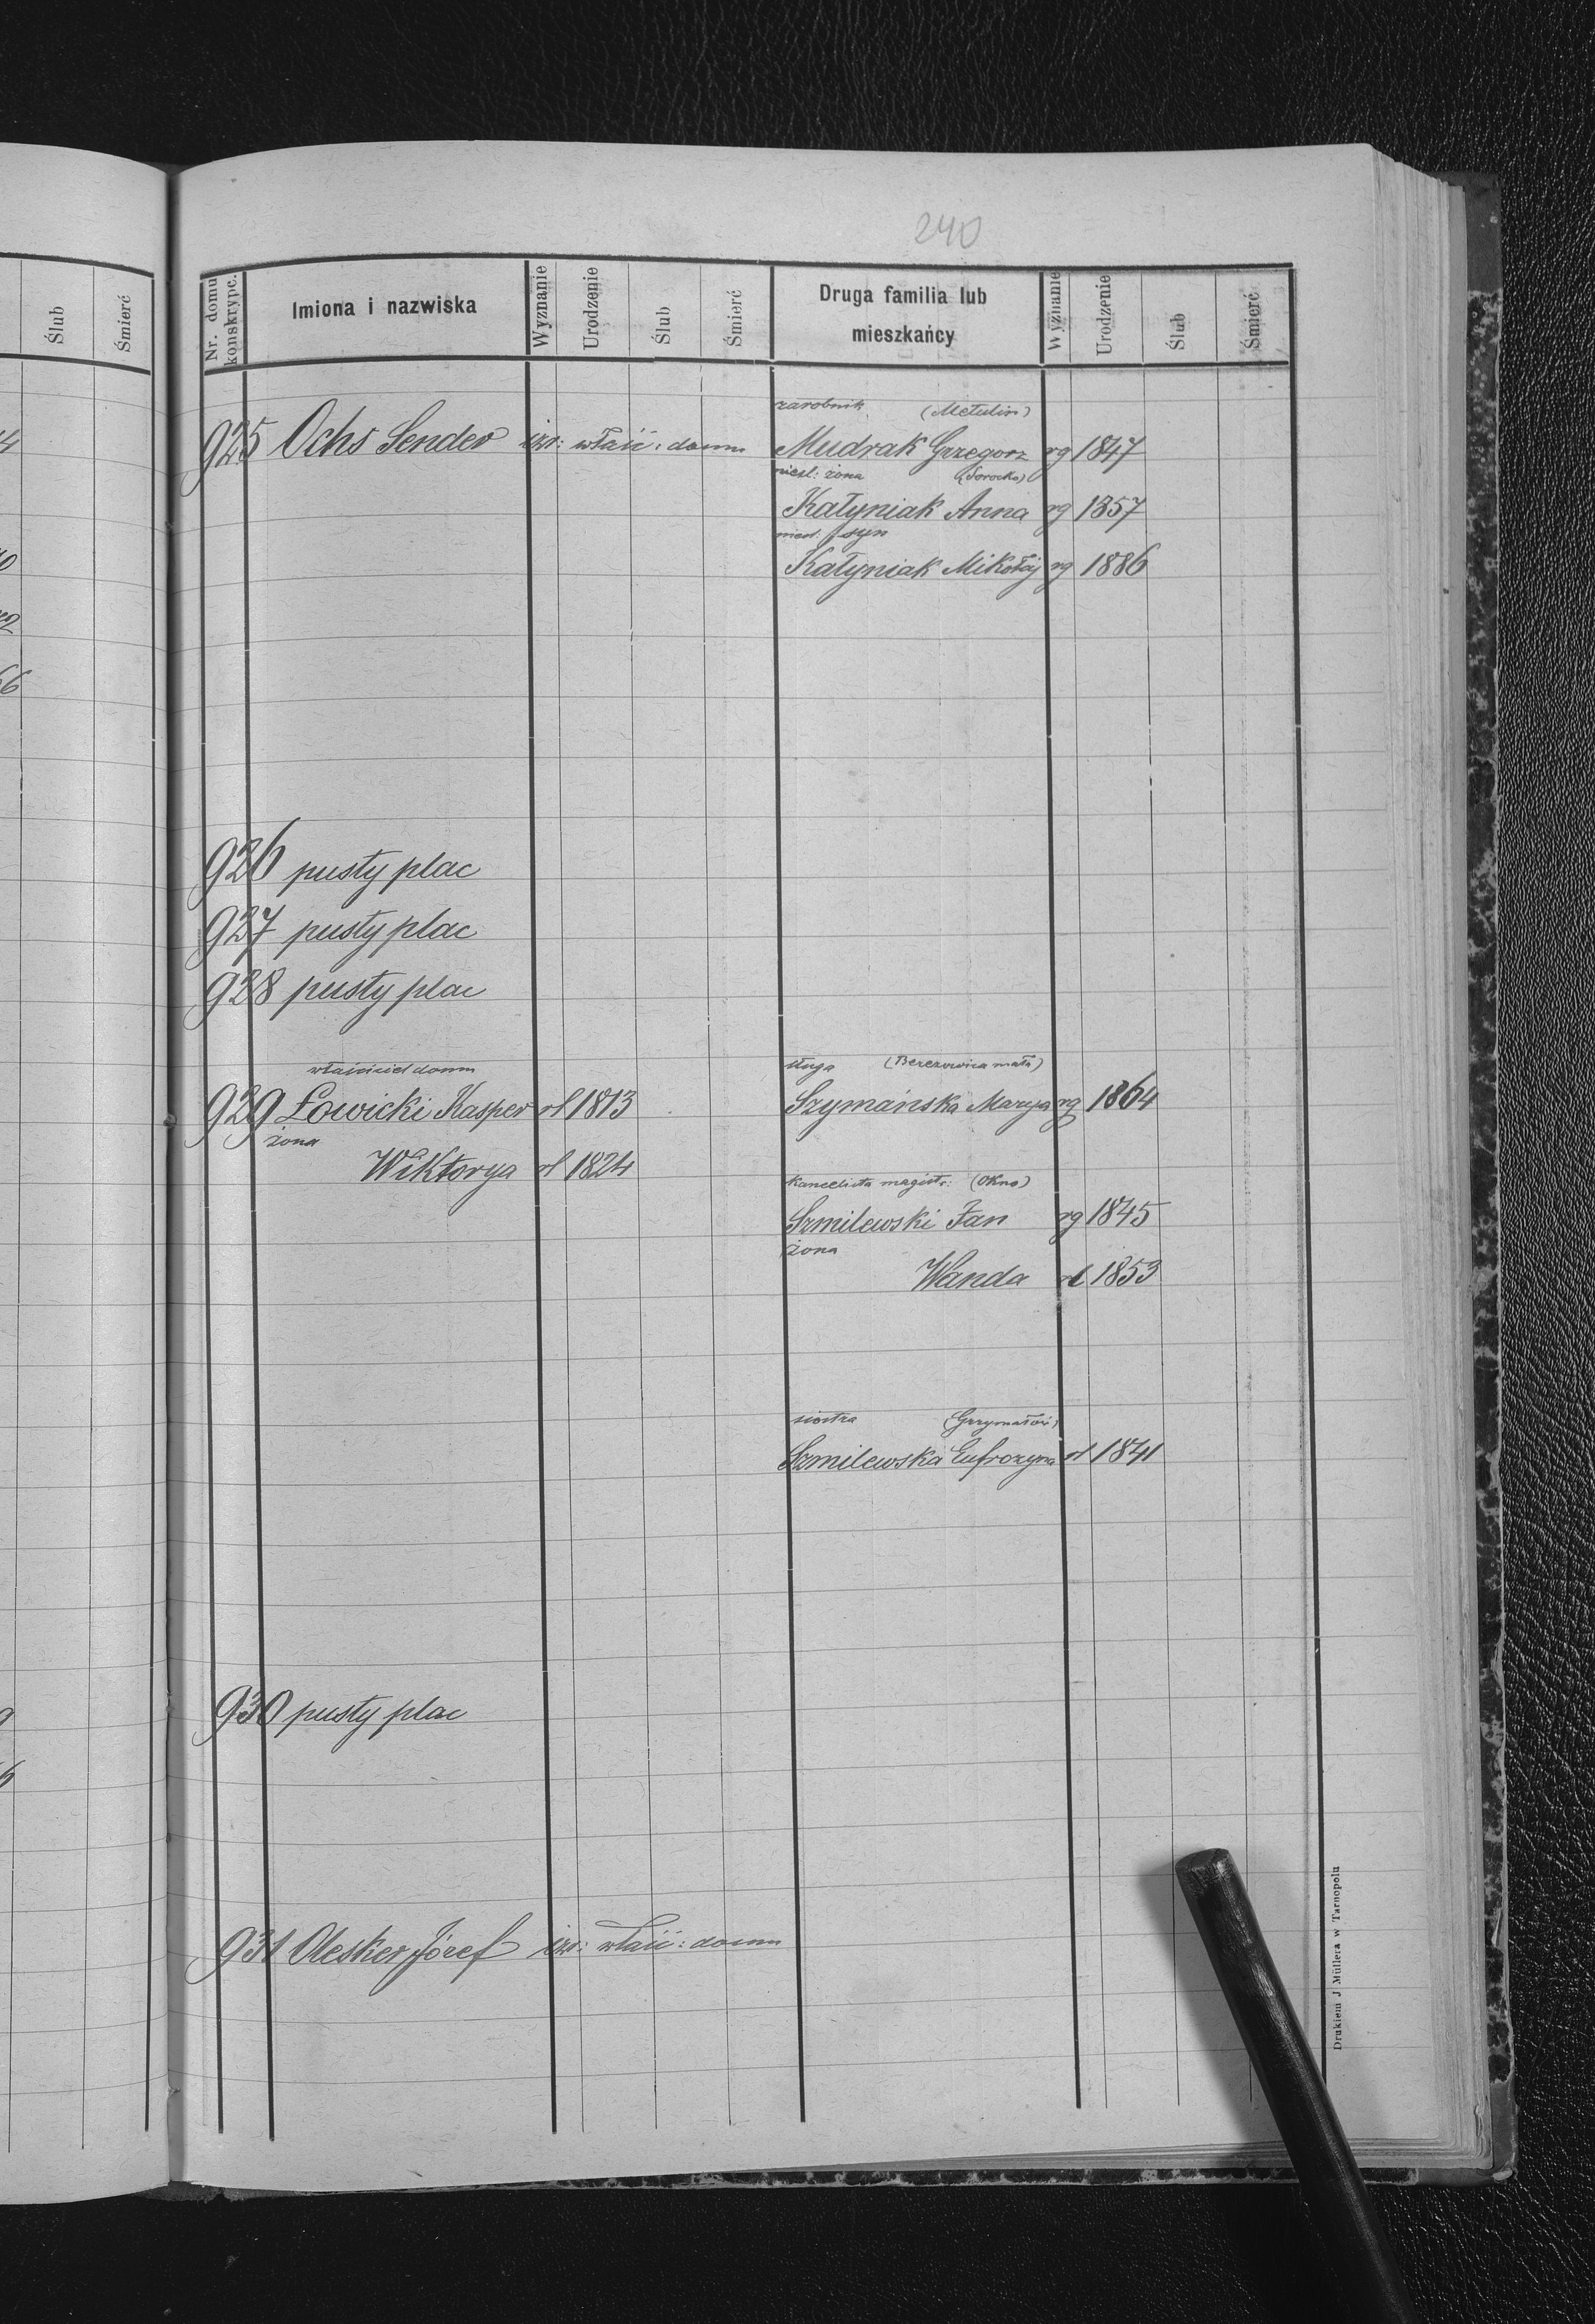 240
Ślub
Śmierć
Nr. domu konskrypc.
Imiona i nazwiska
Wyznanie
Urodzenie
Ślub
Śmierć
Druga familia lub
mieszkańcy
Wyznanie
Urodzenie
Ślub
Śmierć
zarobnik (Metulin)
925 Ochs Sender izr: właść: domu Mudrak Grzegorz rg 1847
żona (Sorocko)
Kałyniak Anna rg 1857
syn
Kałyniak Mikołaj rg 1886
926 pusty plac
927 pusty plac
928 pusty plac
właściciel domu sługa (Berezowica mała)
929 Łowicki Kasper rł 1813 Szymańska Marya rg 1864
żona
Wiktorya rł 1824
kancelista magistr: (Okno)
Szmilewski Jan rg 1845
żona
Wanda rł 1853
siostra (Grzymałów)
Szmilewska Eufrozyna rł 1841
930 pusty plac
931 Olesker Józef izr: właść: domu
Drukiem J Müllera w Tarnopolu